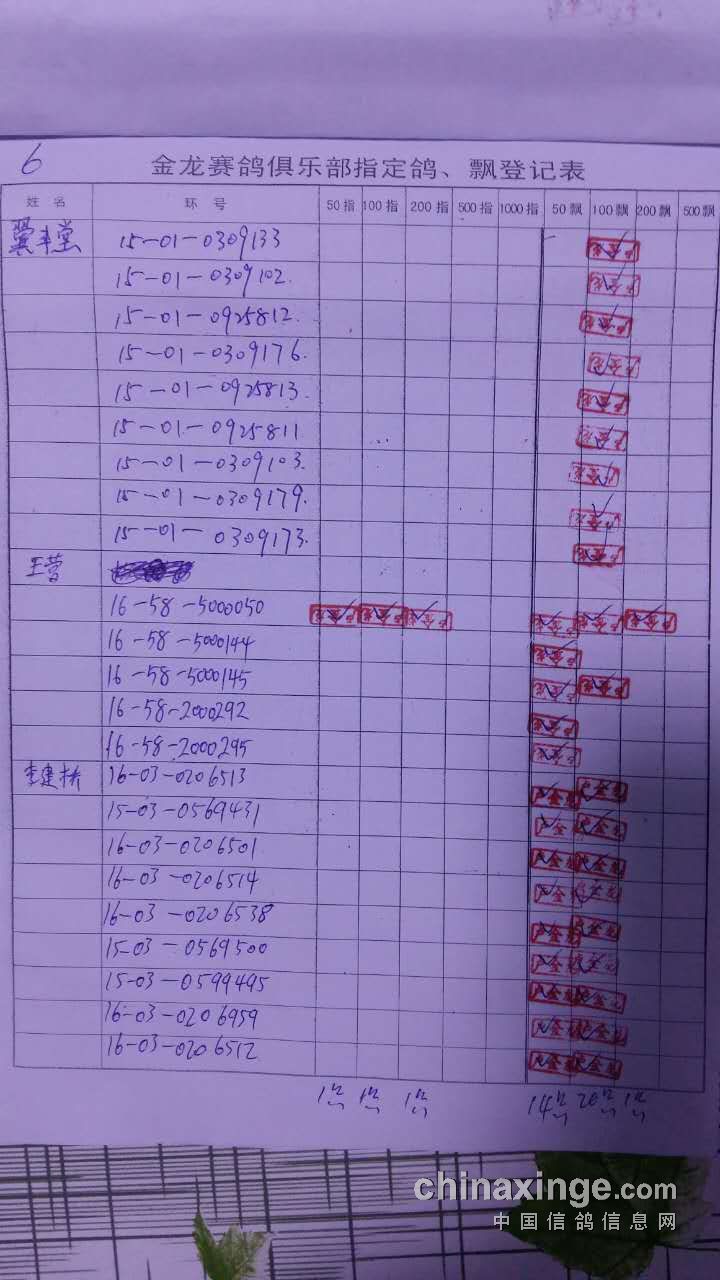 6
金龙赛鸽俱乐部指定鸽、飘登记表
姓 名 环 号 50指 100指 200指 500指 1000指 50飘 100飘 200飘 500飘
翼丰堂 15-01-0309133
15-01-0309102.
15-01-0925812.
15-01-0309176.
15-01-0925813.
15-01-0925811
15-01-0309103.
15-01-0309179.
15-01-0309173.
王营
16-58-5000050
16-58-5000144
16-58-5000145
16-58-2000292
16-58-2000295
李建桥 16-03-0206513
15-03-0569431
16-03-0206501
16-03-0206514
16-03-0206538
15-03-0569500
15-03-0599495
16-03-0206959
16-03-0206512
1 1 1 14 20 1
chinaxinge.com
中国信鸽信息网